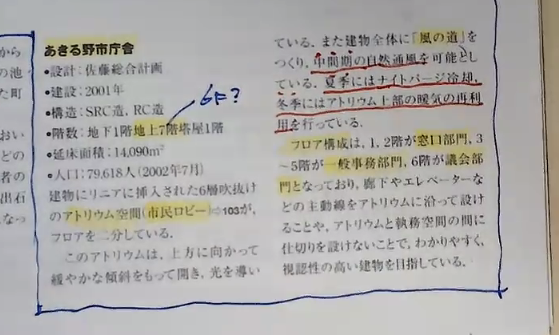 から
の池
た町
おい
どの
者の
出石
なっ
あきる野市庁舎
•設計:佐藤総合計画
•建設:2001年
•構造:SRC造, RC造
•階数:地下1階地上7階塔屋1階
6F?
•延床面積:14,090m²
•人口:79,618人(2002年7月)
建物にリニアに挿入された6層吹抜け
のアトリウム空間(市民ロビー)⇨103が,
フロアを二分している.
このアトリウムは, 上方に向かって
緩やかな傾斜をもって開き, 光を導い
ている. また建物全体に「風の道」を
つくり, 中間期の自然通風を可能とし
ている. 夏季にはナイトパージ冷却,
冬季にはアトリウム上部の暖気の再利
用を行っている.
フロア構成は, 1, 2階が窓口部門, 3
~5階が一般事務部門, 6階が議会部
門となっており, 廊下やエレベーターな
どの主動線をアトリウムに沿って設け
ることや, アトリウムと執務空間の間に
仕切りを設けないことで, わかりやすく,
視認性の高い建物を目指している.